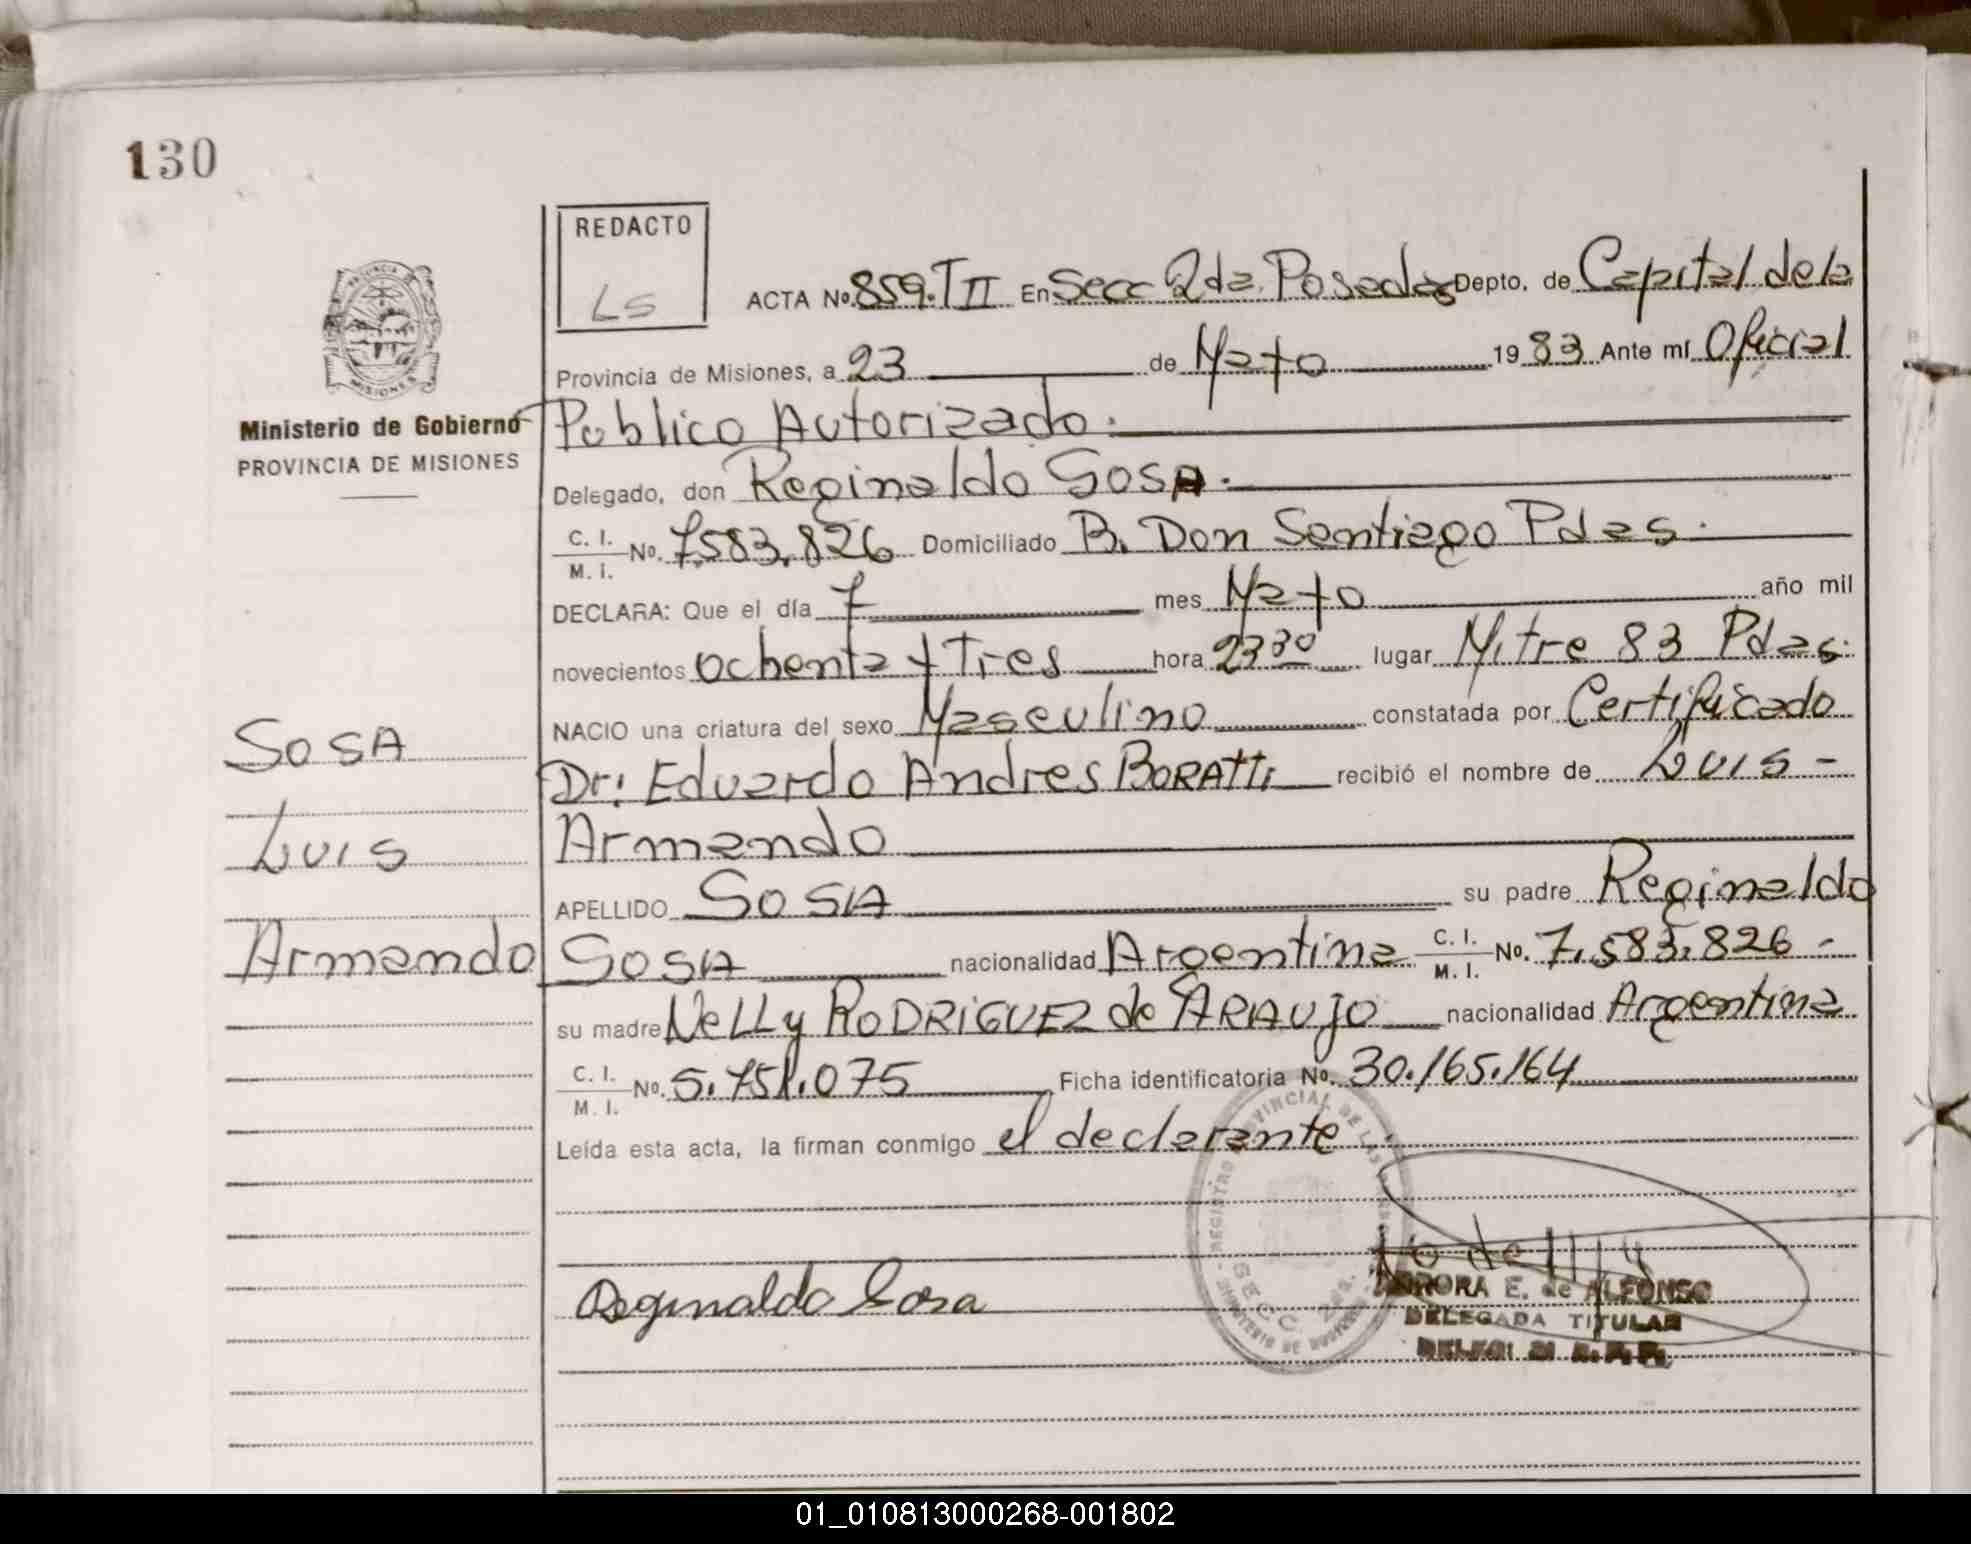 130
REDACTO
LS
ACTA No. 859.T II En Secc 2da. Posadas Depto. de Capital de la
Provincia de Misiones, a 23 de Mayo 1983 Ante mí Oficial
Ministerio de Gobierno
PROVINCIA DE MISIONES
Publico Autorizado.
Delegado, don Reginaldo SOSA.
C. I.
M. I. No. 7.583.826 Domiciliado B. Don Santiago Pdas.
DECLARA: Que el día 7 mes Mayo año mil
novecientos ochenta y Tres hora 23 30 lugar Mitre 83 Pdas.
NACIO una criatura del sexo Masculino constatada por Certificado
Dr: Eduardo Andres BORATTi recibió el nombre de Luis -
Armando
APELLIDO SOSA su padre Reginaldo
SOSA nacionalidad Argentina C. I. M. I. No. 7.583.826 -
su madre NeLLy RODRiGUEZ de ARAUjO nacionalidad Argentina
C. I.
M. I. No. 5.751.075 Ficha identificatoria No. 30.165.164
Leída esta acta, la firman conmigo el declarante
SOSA
Luis
Armando
Reginaldo Sosa
REGISTRO PROVINCIAL DE LAS
SECC. 2da.
E. de ALFONSO
DELEGADA TITULAR
01_010813000268-001802